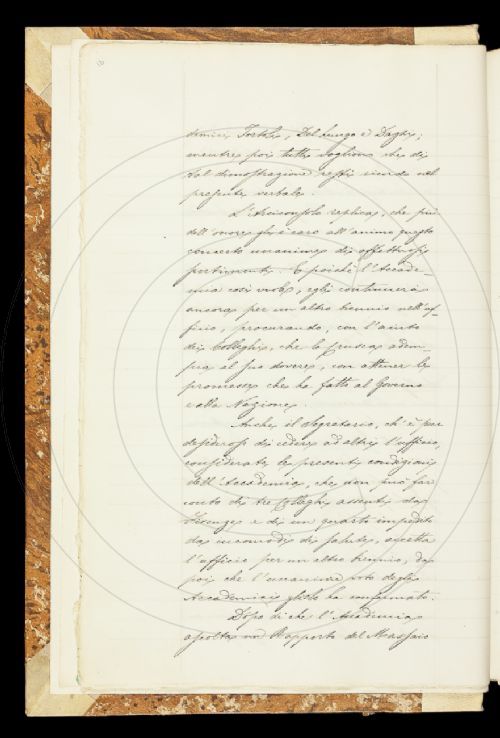 demici Tortoli, Del Lungo e Dazzi;
mentre poi tutti vogliono che di
tal dimostrazione resti ricordo nel
presente verbale.
L'Arciconsolo replica, che più
dell'onore gli è caro all'animo questo
concerto unanime di affettuosi
sentimenti. E poichè l'Accade-
mia così vuole, egli continuerà
ancora per un altro biennio nell'uf-
ficio, procurando, con l'aiuto
dei Colleghi, che la Crusca adem-
pia al suo dovere, con attener le
promesse che ha fatte al Governo
e alla Nazione.
Anche il Segretario, ch'è pur
desideroso di cedere ad altri l'ufficio,
considerate le presenti condizioni
dell'Accademia, che non può far
conto di tre Colleghi assenti da
Firenze e di un quarto impedito
da incomodi di salute, accetta
l'ufficio per un altro biennio, da
poi che l'unanime voto degli
Accademici glielo ha confermato.
Dopo di che l'Accademia
ascolta un Rapporto del Massaio